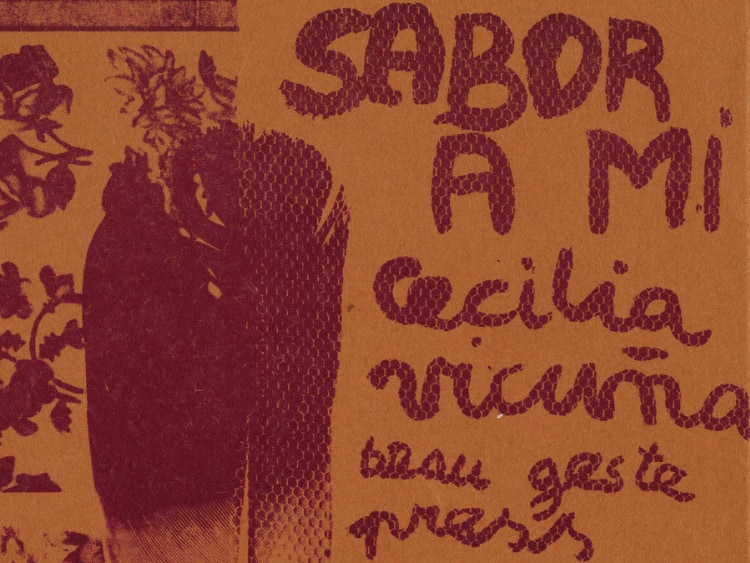 SABOR
A MI
Cecilia
vicuña
beau geste
press